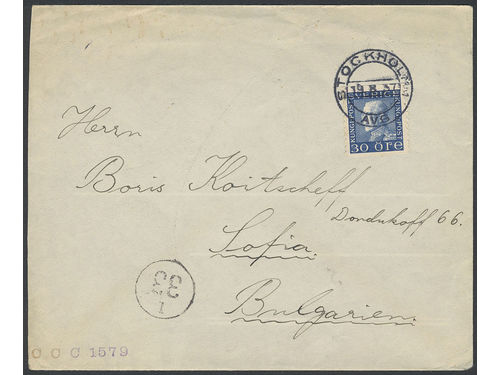 STOCKHOLM
19.8.37
AVG
SVERIGE
KUNGL. POST
30 ÖRE
Herrn
Boris Koitscheff
Dondukoff 66.
Sofia
Bulgarien.
33
1
C C C 1579